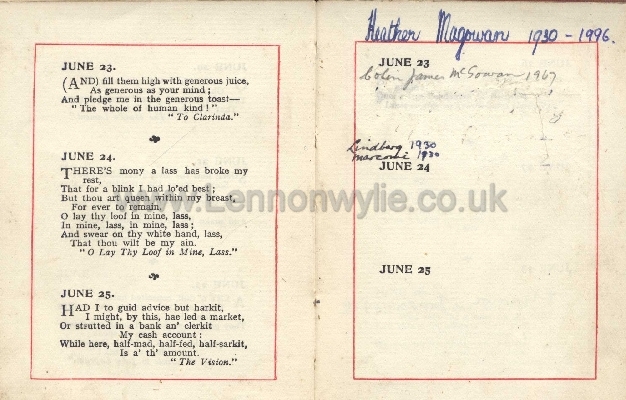 JUNE 23.
(AND) fill them high with generous juice,
As generous as your mind;
And pledge me in the generous toast—
"The whole of human kind!"
"To Clarinda."
JUNE 24.
THERE'S mony a lass has broke my
rest,
That for a blink I had lo'ed best;
But thou art queen within my breast,
For ever to remain.
O lay thy loof in mine, lass,
In mine, lass, in mine, lass;
And swear on thy white hand, lass,
That thou wilt be my ain.
"O Lay Thy Loof in Mine, Lass."
JUNE 25.
HAD I to guid advice but harkit,
I might, by this, hae led a market,
Or strutted in a bank an' clerkit
My cash account:
While here, half-mad, half-fed, half-sarkit,
Is a' th' amount.
"The Vision."
Heather Magowan 1930 - 1996.
JUNE 23
Colin James McGowan 1967
Lindberg 1930
Marconi 1930
JUNE 24
JUNE 25
www.Lennonwylie.co.uk